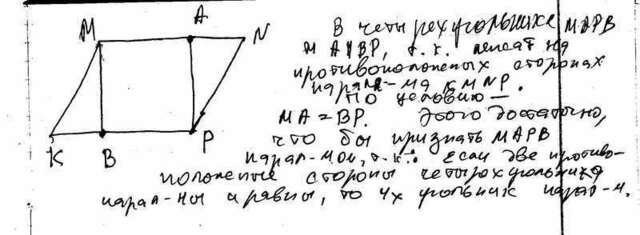 М A N
K B P
В четырехугольнике МАРВ
МА || ВР, т.к. лежат на
противоположных сторонах
парал-ма KMNP.
По условию —
МА = ВР. Этого достаточно,
что бы признать МАРВ
парал-мом, т.к.: если две противо-
положные стороны четырехугольника
парал-ны и равны, то 4х угольник парал-м.